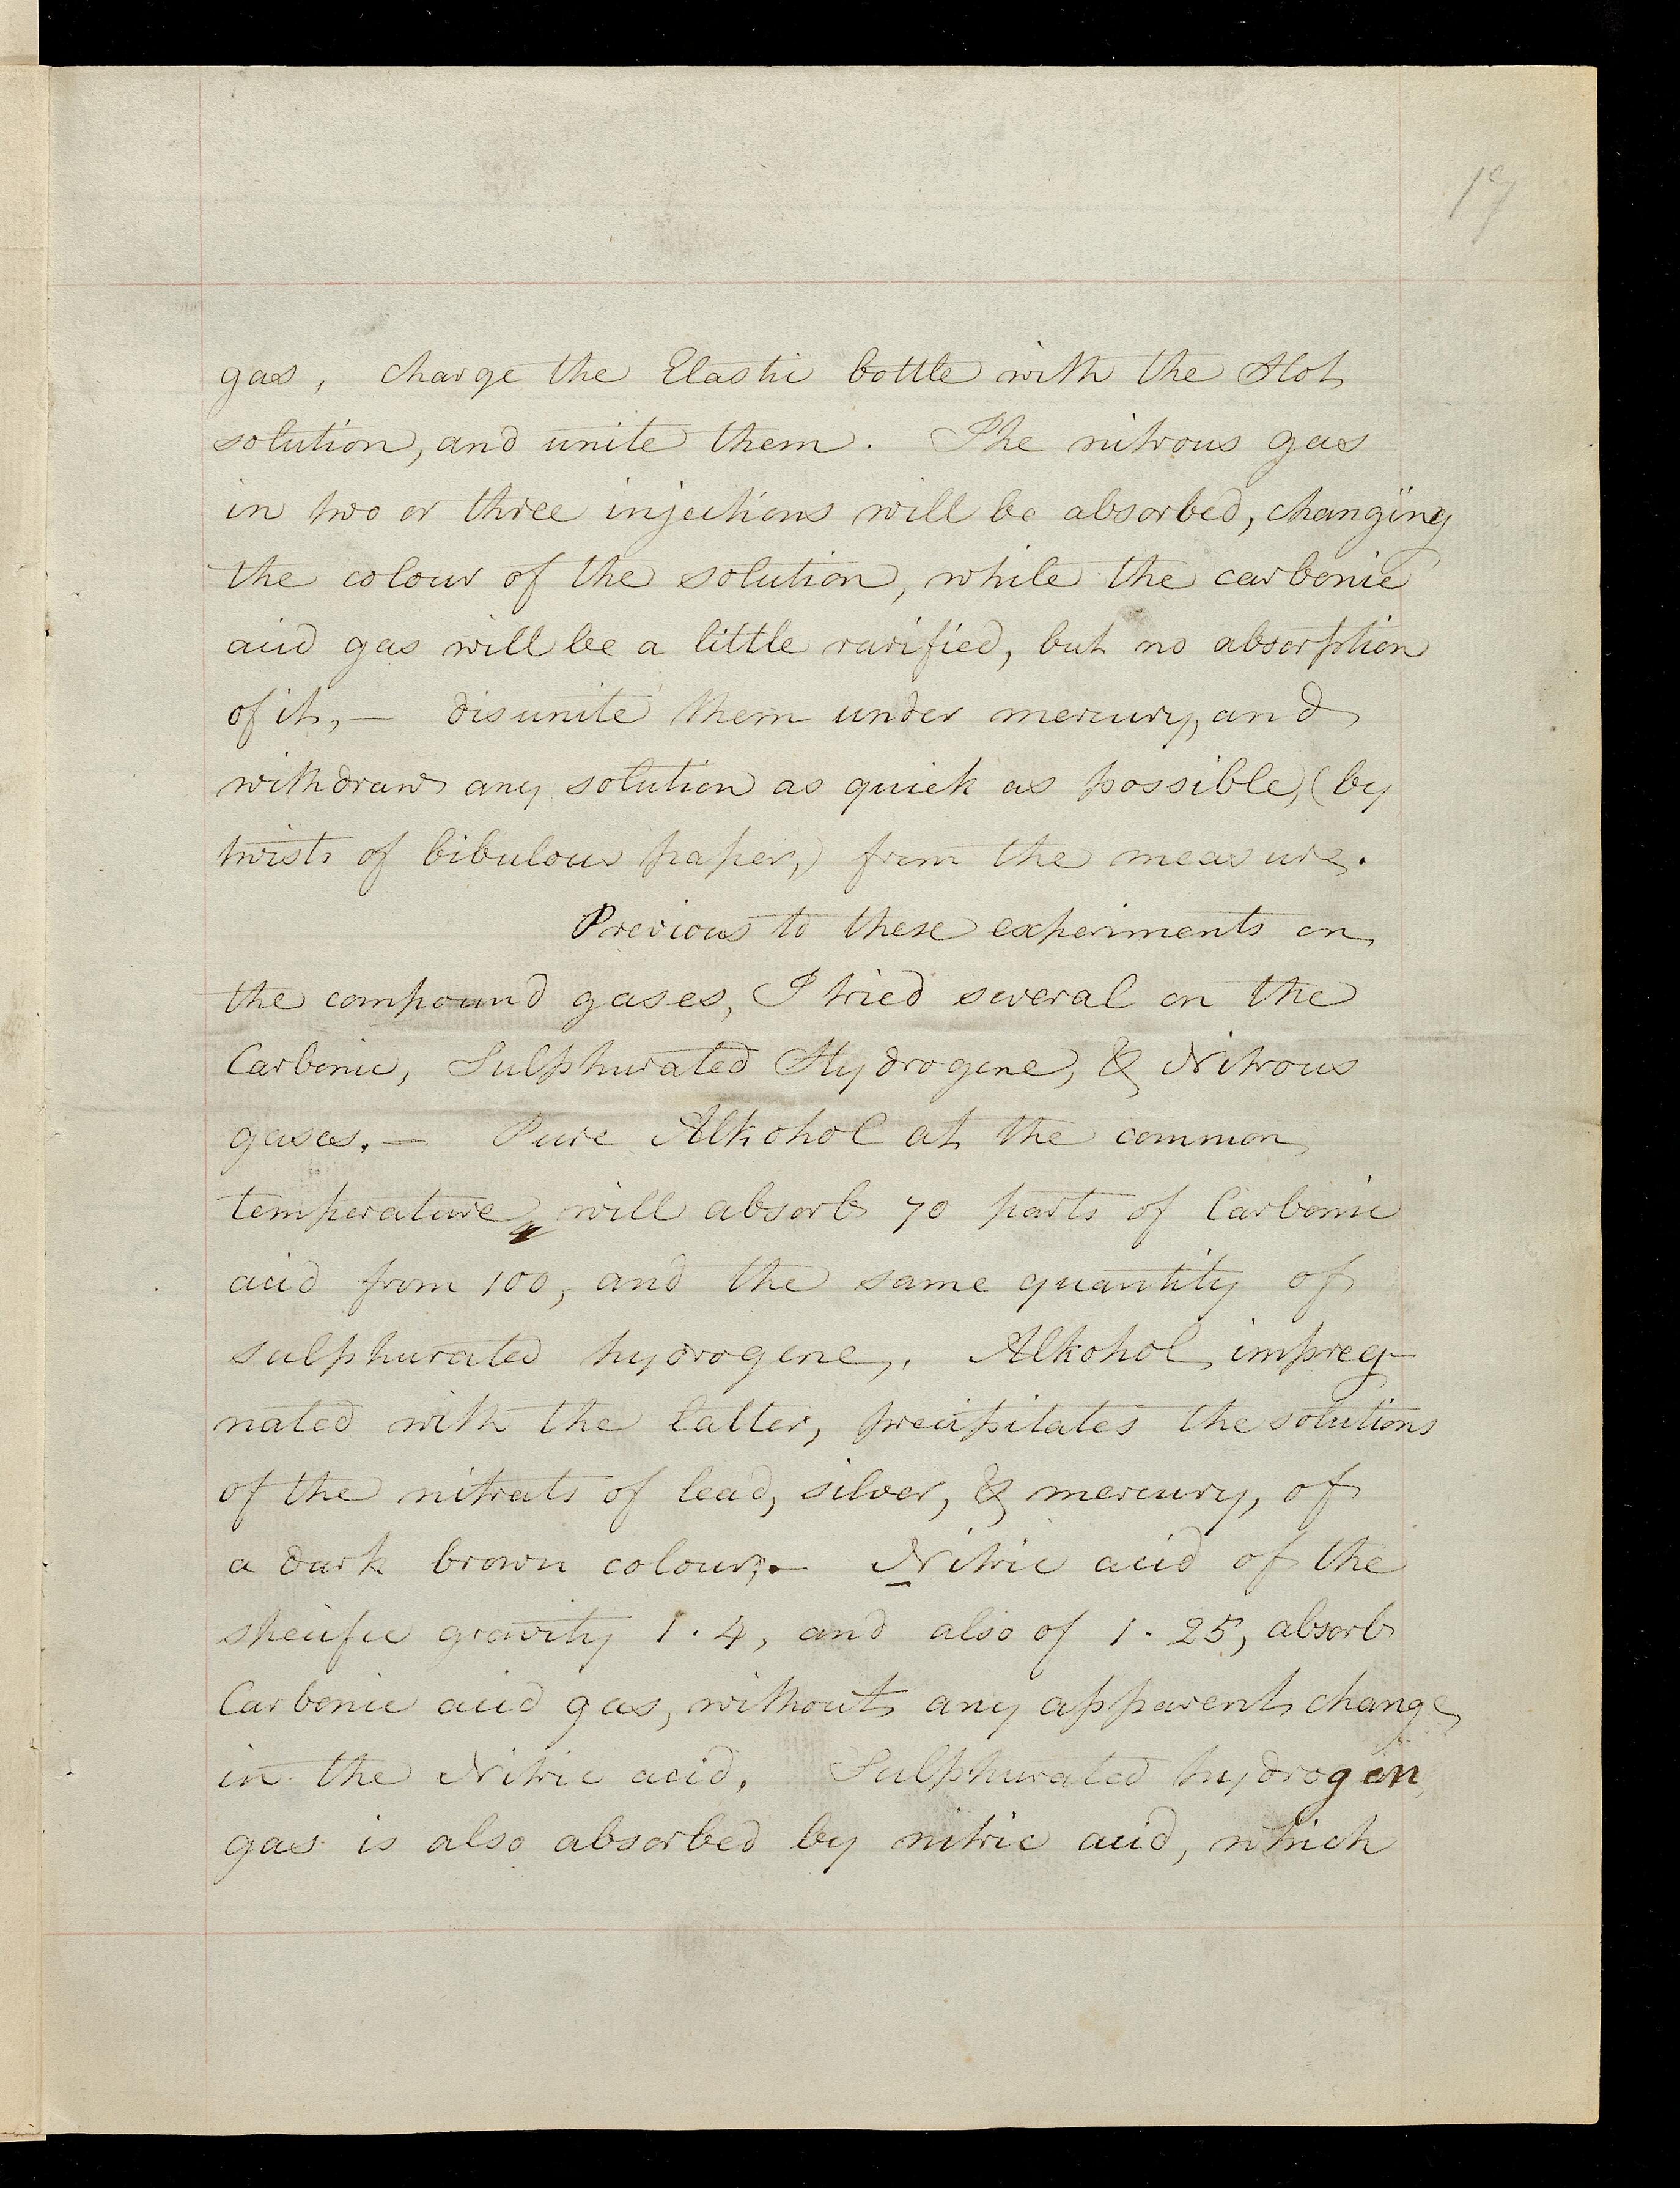 17
gas, charge the Elastic bottle with the Hot
solution, and unite them. The nitrous gas
in two or three injections will be absorbed, changing
the colour of the solution, while the carbonic
acid gas will be a little rarified, but no absorption
of it, — disunite them under mercury, and
withdraw any solution as quick as possible, (by
twists of bibulous paper,) from the measure.
Previous to these experiments on
the compound gases, I tried several on the
Carbonic, Sulphurated Hydrogene, & Nitrous
gases. — Pure Alkohol at the common
temperature, will absorb 70 parts of Carbonic
acid from 100, and the same quantity of
sulphurated hydrogene,. Alkohol impreg-
nated with the latter, precipitates the solutions
of the nitrats of lead, silver, & mercury, of
a dark brown colour; — Nitric acid of the
specific gravity 1.4, and also of 1.25, absorb
Carbonic acid gas, without any apparent change
in the Nitric acid. Sulphurated hydrogen
gas is also absorbed by nitric acid, which